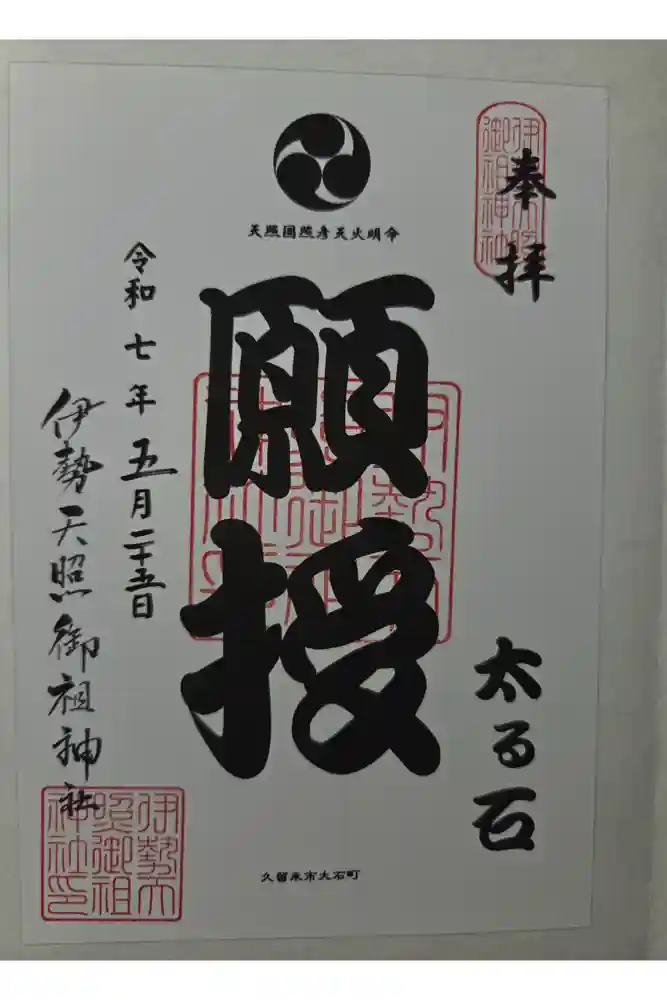 奉拝
伊勢天照御祖神社
天照國照彦天火明命
願授
太る石
令和七年五月二十五日
伊勢天照御祖神社
伊勢天照御祖神社印
久留米市大石町